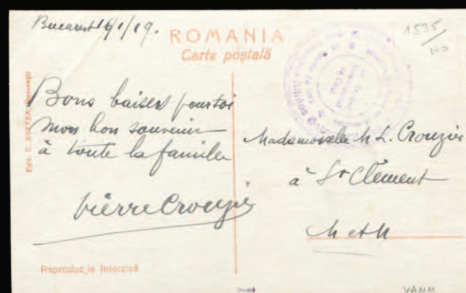 Bucarest 16/1/19.
ROMANIA
Carte poştală
1535
110
Bons baisers pour toi
mon bon souvenir
à toute la famille
Pierre Crouzier
Mademoiselle M. L. Crouzier
à St Clément
M et M
Reproducţia interzisă
VANM